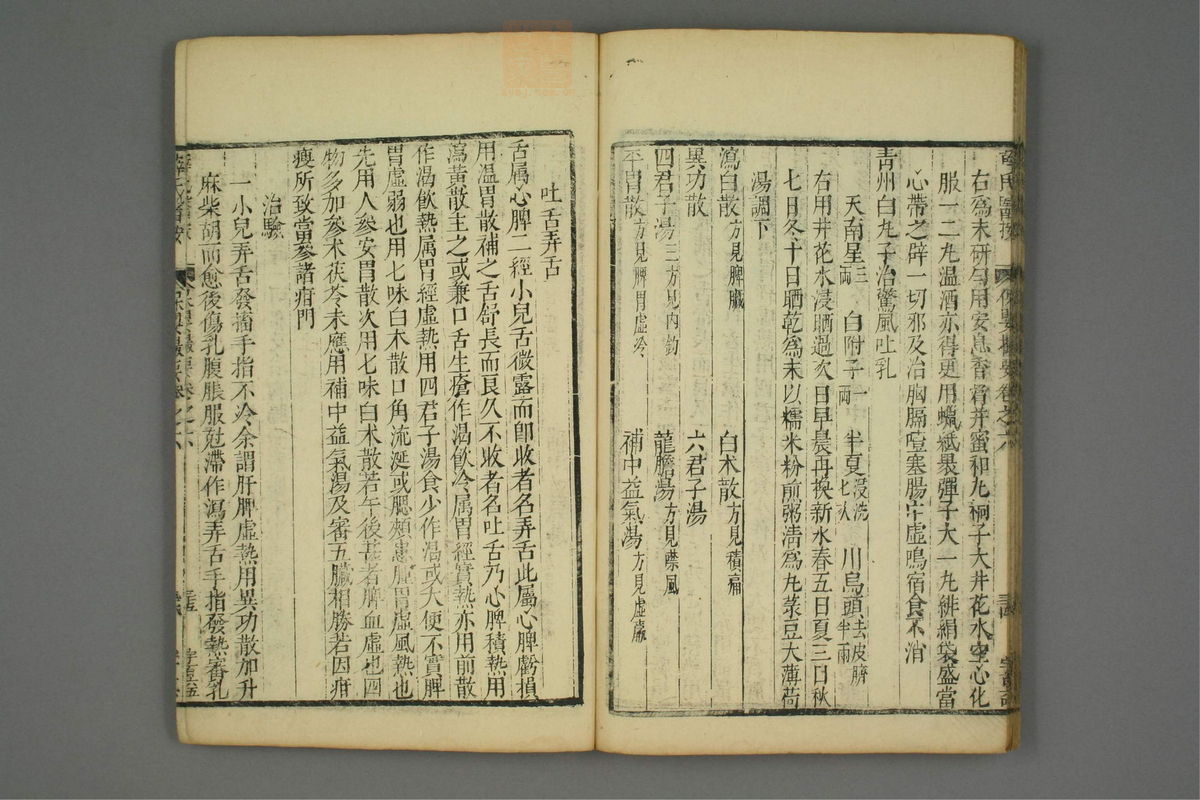 右爲末研勻用安息香膏幷蜜和丸桐子大井花水空心化
服一二丸温酒亦得更用蠟紙裹彈子大一丸緋絹袋盛當
心帶之辟一切邪及治胸膈噎塞腸中虛鳴宿食不消
青州白丸子治驚風吐乳
天南星三兩 白附子一兩 半夏浸洗七次 川烏頭去皮臍半兩
右用井花水浸晒過次日早晨再換新水春五日夏三日秋
七日冬十日晒乾爲末以糯米粉煎粥清爲丸菉豆大薄荷
湯調下
瀉白散方見脾臟 白朮散方見積痛
異功散 六君子湯
四君子湯三方見内釣 龍膽湯方見噤風
平胃散方見脾胃虛冷 補中益氣湯方見虛羸
吐舌弄舌
舌屬心脾二經小兒舌微露而卽收者名弄舌此屬心脾虧損
用温胃散補之舌舒長而良久不收者名吐舌乃心脾積熱用
瀉黃散主之或兼口舌生瘡作渴飲冷屬胃經實熱亦用前散
作渴飲熱屬胃經虛熱用四君子湯食少作渴或大便不實脾
胃虛弱也用七味白朮散口角流涎或腮頰患腫胃虛風熱也
先用人參安胃散次用七味白朮散若午後甚者脾血虛也四
物多加參朮茯苓未應用補中益氣湯及審五臟相勝若因疳
瘦所致當參諸疳門
治驗
一小兒弄舌發搐手指不冷余謂肝脾虛熱用異功散加升
麻柴胡而愈後傷乳腹脹服尅滯作瀉弄舌手指發熱審乳